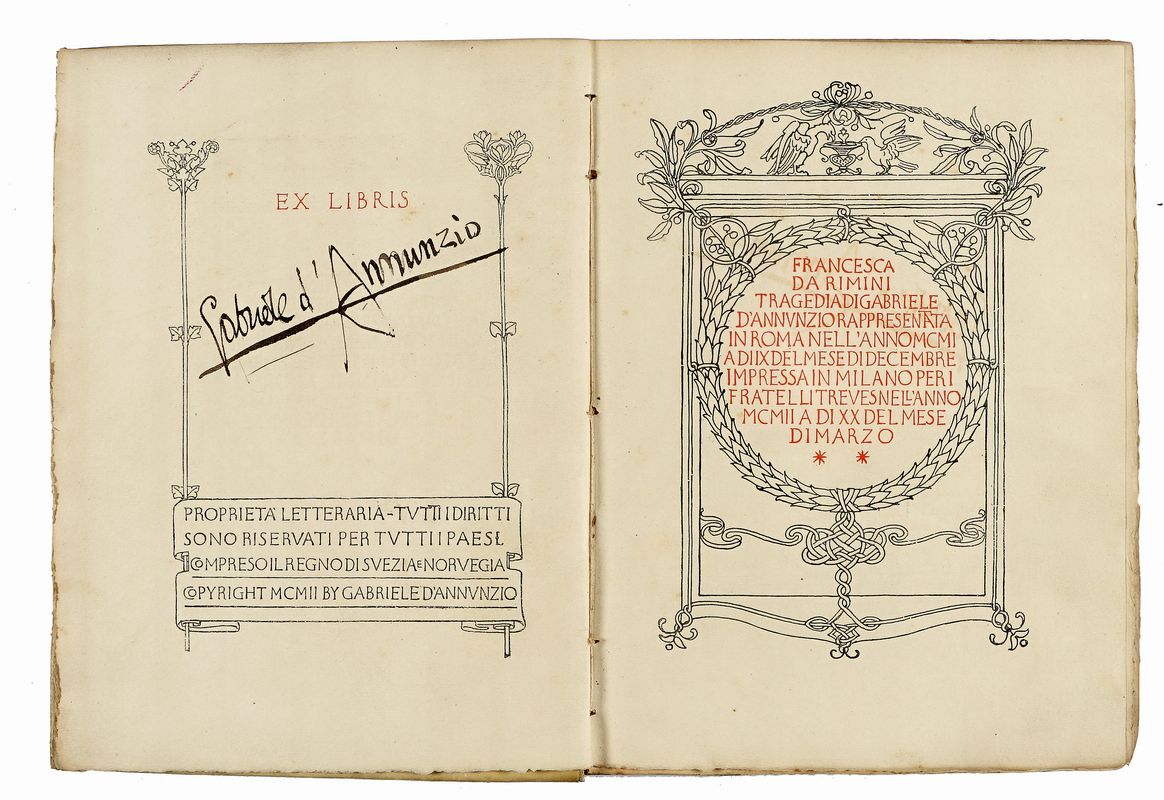 EX LIBRIS
Gabriele d'Annunzio
PROPRIETA' LETTERARIA-TVTTI I DIRITTI
SONO RISERVATI PER TVTTI I PAESI.
COMPRESO IL REGNO DI SVEZIA E NORVEGIA
COPYRIGHT MCMII BY GABRIELE D'ANNVNZIO
FRANCESCA
DA RIMINI
TRAGEDIA DI GABRIELE
D'ANNVNZIO RAPPRESENTATA
IN ROMA NELL'ANNO MCMI
A DI IX DEL MESE DI DECEMBRE
IMPRESSA IN MILANO PER I
FRATELLI TREVES NELL'ANNO
MCMII A DI XX DEL MESE
DI MARZO